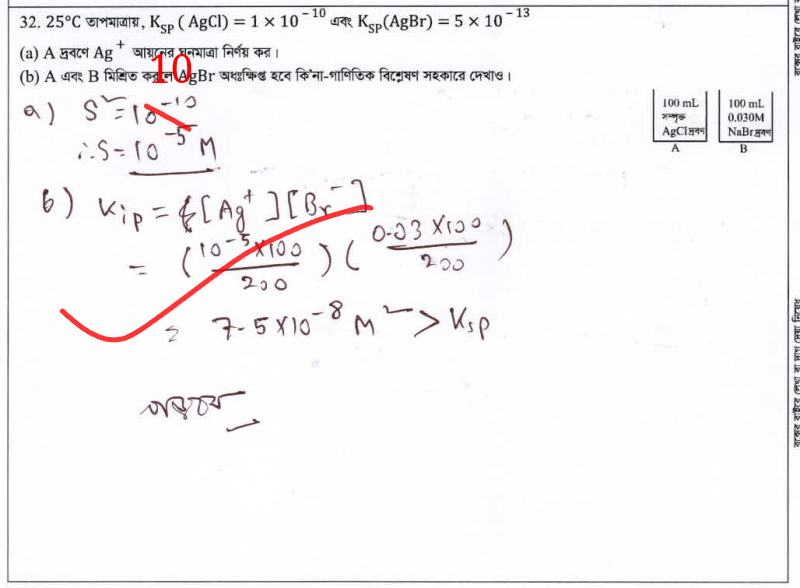 32. 25°C তাপমাত্রায়, K_SP ( AgCl) = 1 × 10^−10 এবং K_SP(AgBr) = 5 × 10^−13
(a) A দ্রবণে Ag^+ আয়নের ঘনমাত্রা নির্ণয় কর।
(b) A এবং B মিশ্রিত করলে AgBr অধঃক্ষিপ্ত হবে কি'না-গাণিতিক বিশ্লেষণ সহকারে দেখাও।
10
100 mL
সম্পৃক্ত
AgCl দ্রবণ
A
100 mL
0.030M
NaBr দ্রবণ
B
a) S^2 = 10^-10
∴ S = 10^-5 M
b) K_ip = [Ag^+] [Br^-]
= (10^-5 × 100 / 200) (0.03 × 100 / 200)
= 7.5 × 10^-8 M^2 > K_sp